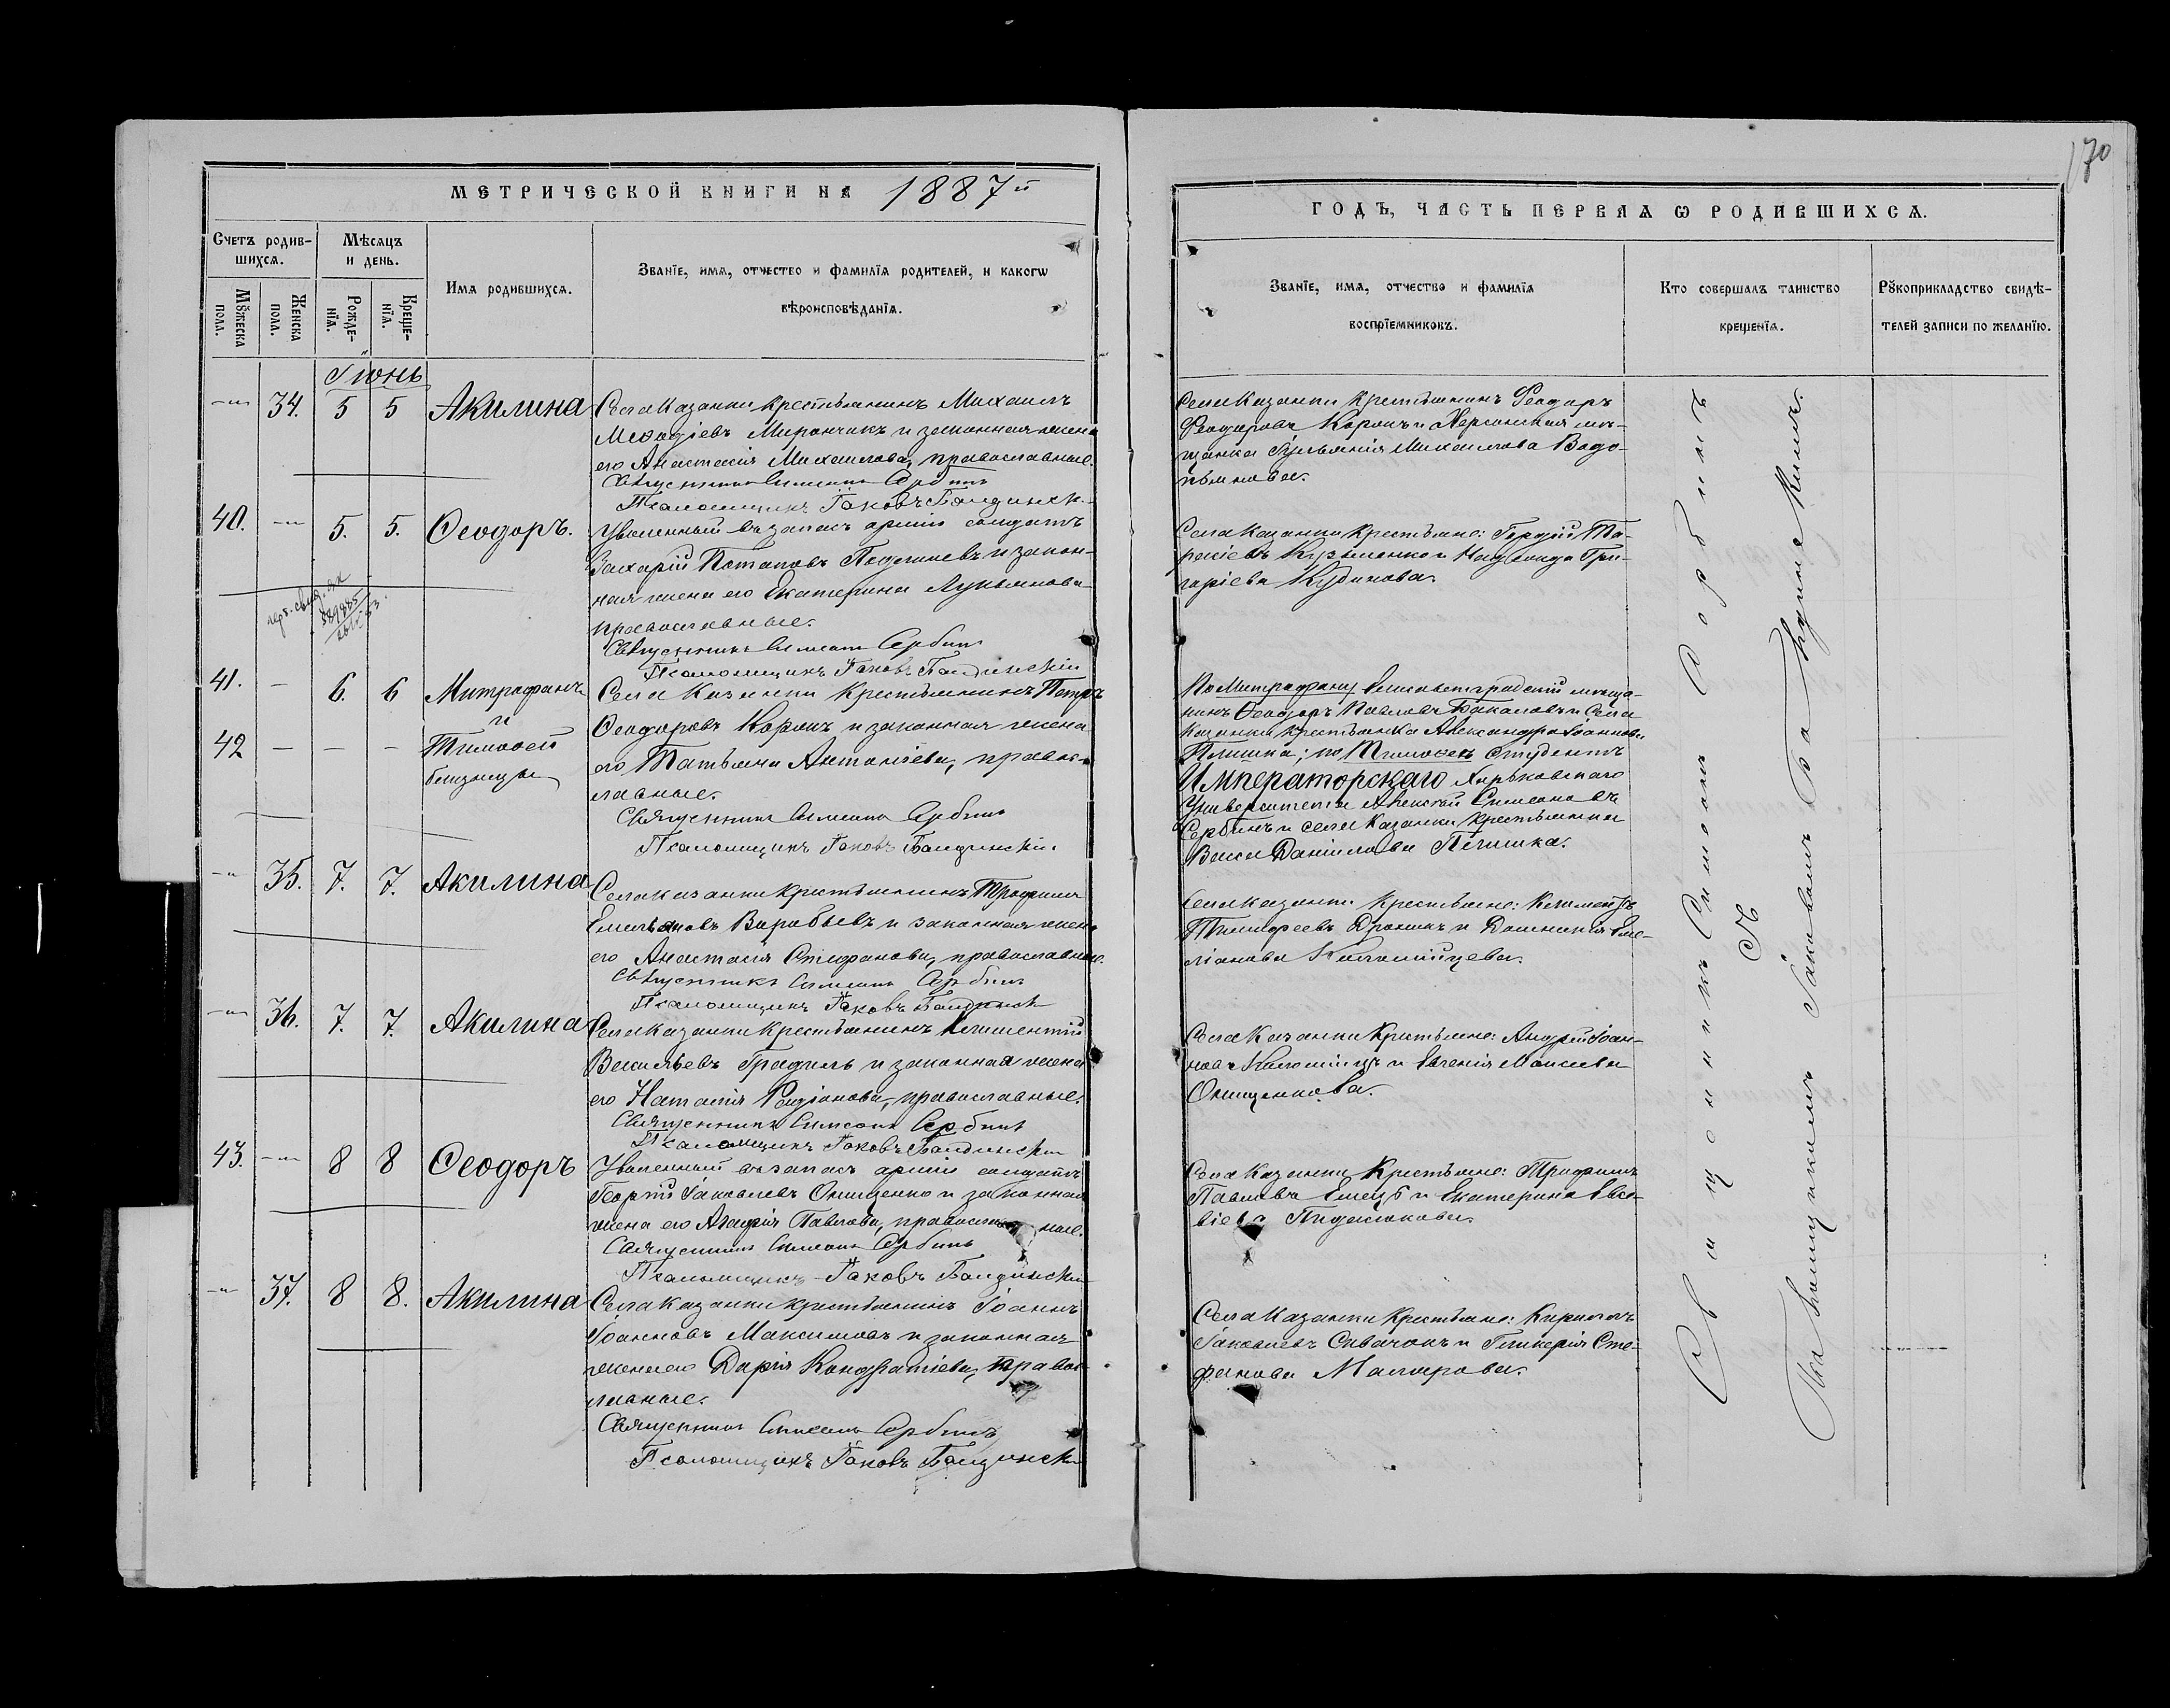 170
МЕТРИЧЕСКОЙ КНИГИ НА 1887й
ГОДЪ, ЧАСТЬ ПЕРВАЯ Ѡ РОДИВШИХСЯ.
Счетъ родив-
шихся.
Мѣсяцъ
и день.
Мꙋжеска
пола.
Женска
пола.
Рожде-
нїя.
Креще-
нїя.
Имя родившихся.
Званїе, имя, отчество и фамилїя родителей, и какогѡ
вѣроисповѣданїя.
Званїе, имя, отчество и фамилїя
воспрїемниковъ.
Кто совершалъ таинство
крещенїя.
Рꙋкоприкладство свидѣ-
телей записи по желанїю.
Іюнь
34. 5 5 Акилина
Села Казанки крестьянинъ Михаилъ
Меѳодіевъ Мирончикъ и законная жена
его Анастасія Михаилова, православные.
Священникъ Симеонъ Сербинъ
Псаломщикъ Іаковъ Бандинск
Села Казанки крестьянинъ Феодоръ
Феодоровъ Коропъ и Херсонская мѣ-
щанка Іуліанія Михаилова Водо-
пьянова.
40. 5. 5. Ѳеодоръ.
Уволенный въ запасъ арміи солдатъ
Захарій Потаповъ и закон-
ная жена его Екатерина Лукьянова
православные.
Священникъ Симеонъ Сербинъ
Псаломщикъ Іаковъ Бандинскій
Села Казанки крестьяне: Гордій Та-
расіевъ Кузьменко и Надежда Гри-
горіева Кудинова.
41. 6. 6 Митрофанъ
и
42 Тимоѳей
близнецы
Села Казанки крестьянинъ Петръ
Ѳеодоровъ Коропъ и законная жена
его Татьяна Антоніева, правос-
лавные.
Священникъ Симеонъ Сербинъ
Псаломщикъ Іаковъ Бандинскій
По Митрофану Елисаветградскій мѣща-
нинъ Ѳеодоръ Павловъ Бакаловъ и села
Казанки крестьянка Александра Іоаннова
по Тимоѳею студентъ
Императорскаго Харьковскаго
Университета Алексѣй Симеоновъ
Сербинъ и села Казанки крестьянка
Васса Даніилова
35. 7. 7. Акилина
Села Казанки крестьянинъ Трофимъ
Емельяновъ Воробьевъ и законная жена
его Анастасія Стефанова, православные.
Священникъ Симеонъ Сербинъ
Псаломщикъ Іаковъ Бандинск
Села Казанки крестьяне:
Тимофеевъ и Домникія Еме-
ліанова Коломійцева.
36. 7. 7. Акилина
Села Казанки крестьянинъ Климентій
Васильевъ Градиль и законная жена
его Наталія Родіонова, православные.
Священникъ Симеонъ Сербинъ
Псаломщикъ Іаковъ Бандинскій
Села Казанки крестьяне: Андрей Іоан-
новъ Коломіецъ и Евгенія Моисеева
Онищенкова.
43. 8 8 Ѳеодоръ
Уволенный въ запасъ арміи солдатъ
Георгій Іаковлевъ Онищенко и законная
жена его Агафія Павлова, православные.
Священникъ Симеонъ Сербинъ
Псаломщикъ Іаковъ Бандинскій
Села Казанки крестьяне: Трофимъ
Павловъ Емецъ и Екатерина Евсе-
віева
37. 8 8. Акилина
Села Казанки крестьянинъ Іоаннъ
Іоанновъ Максимовъ и законная
жена его Дарія Кондратіева, правос-
лавные.
Священникъ Симеонъ Сербинъ
Псаломщикъ Іаковъ Бандинскій
Села Казанки крестьяне: Кириллъ
Іаковлевъ Сивачокъ и Гликерія Сте-
фанова Малярова.
Священникъ Симеонъ Сербинъ
съ
Псаломщикомъ Іаковомъ Бандинскимъ.